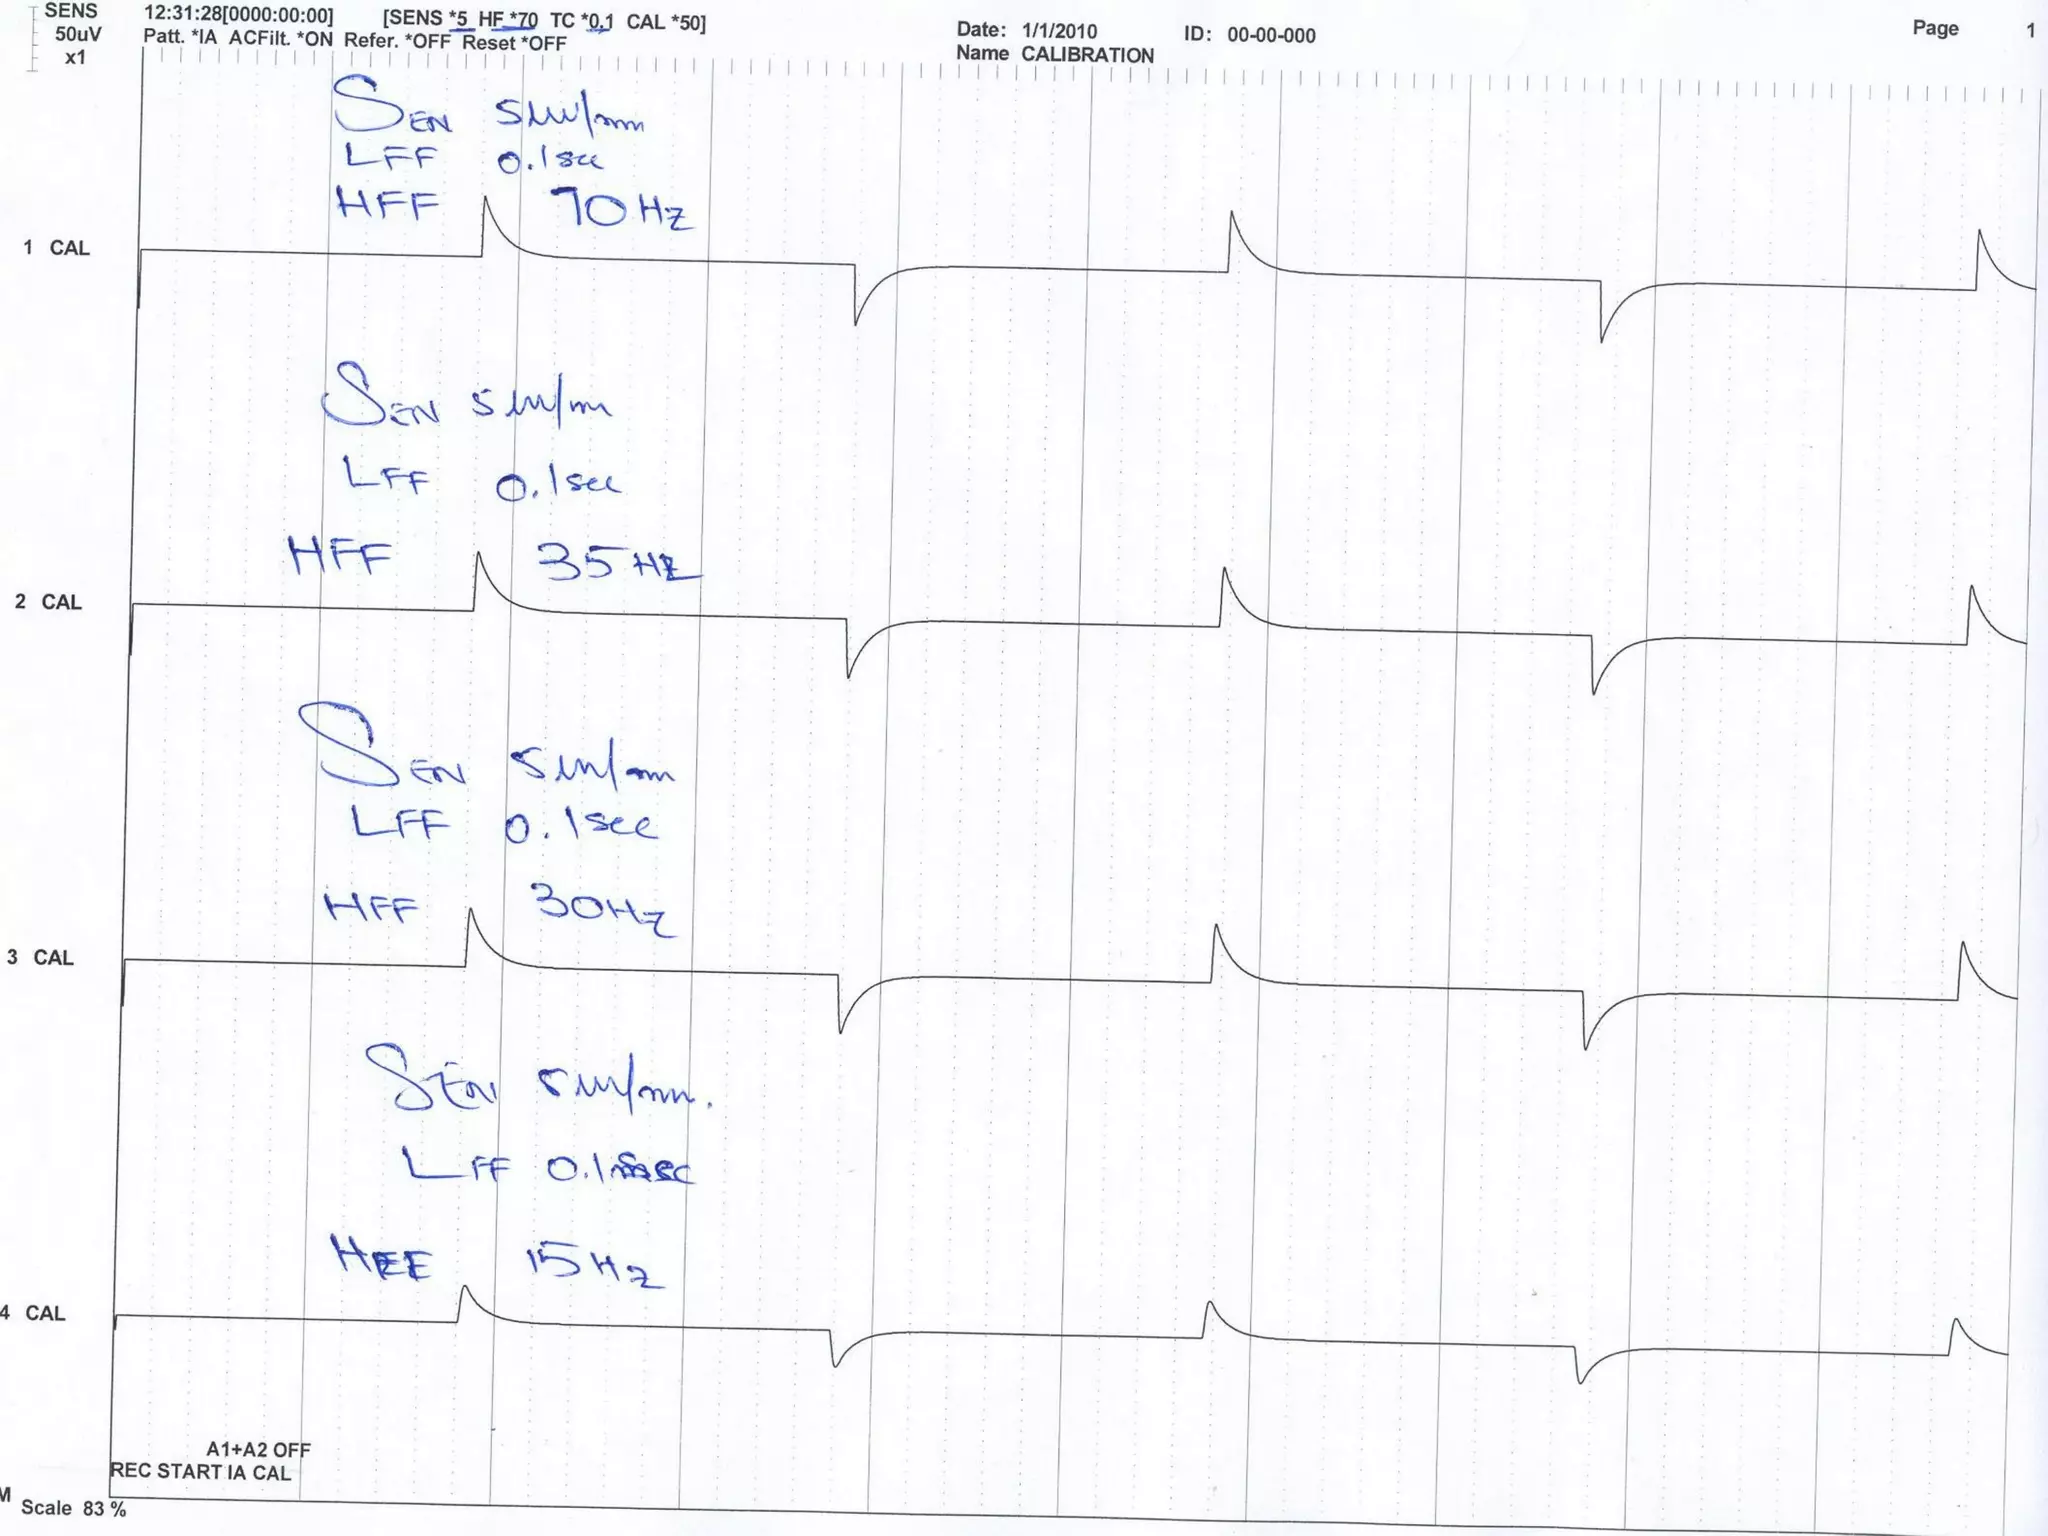 SENS 12:31:28[0000:00:00] [SENS *5 HF *70 TC *0.1 CAL *50] Date: 1/1/2010 ID: 00-00-000 Page 1
50uV Patt. *IA ACFilt. *ON Refer. *OFF Reset *OFF Name CALIBRATION
x1
SEN 5uv/mm
LFF 0.1sec
HFF 70Hz
1 CAL
SEN 5uv/m
LFF 0.1sec
HFF 35Hz
2 CAL
SEN 5uv/mm
LFF 0.1sec
HFF 30Hz
3 CAL
SEN 5uv/mm.
LFF 0.1 sec
HFF 15Hz
4 CAL
A1+A2 OFF
REC START IA CAL
M Scale 83 %